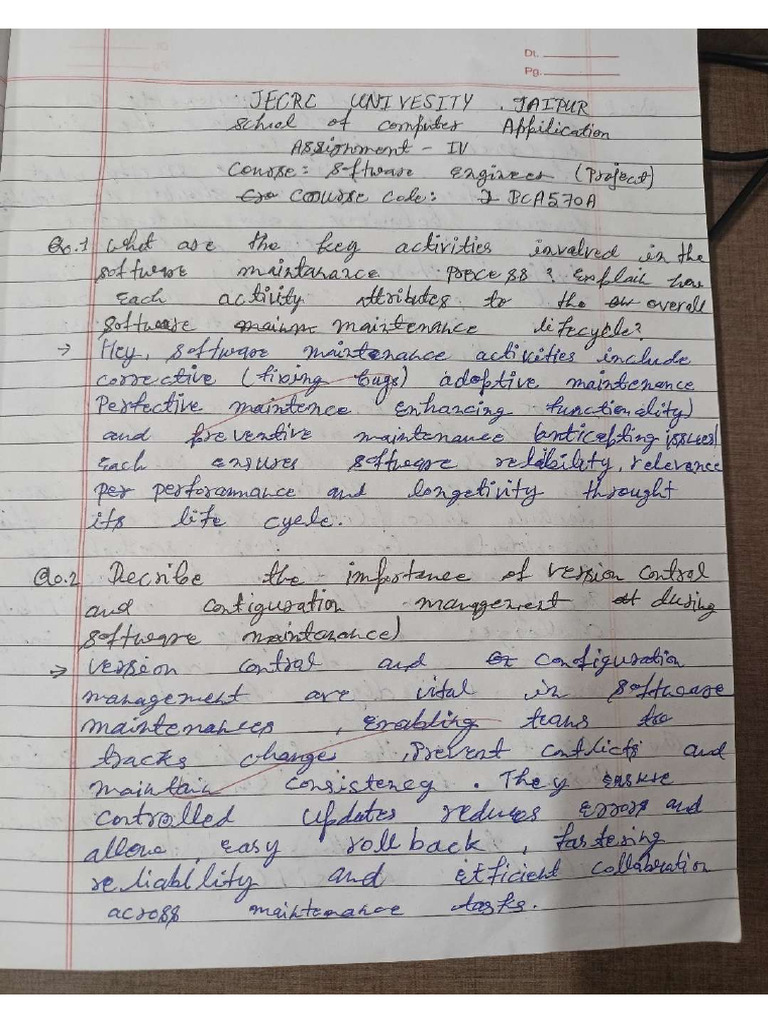 Dt.
Pg.
JECRC UNIVESITY . JAIPUR
School of computer Appilication
Assignment - IV
Course: software engineer (Project)
Course code: BCA570A
Qo.1 what are the key activities involved in the
software maintanance process? Explain how
each activity attributes to the overall
software maintenance lifecycle?
→ Hey, software maintenance activities include
corrective (fixing bugs) adoptive maintenance
Perfective maintence enhancing functionality)
and preventive maintenance (anticepting issues)
Each ensures software relibility, relevance
per perforamnance and longetivity throught
its life cycle.
Qo.2 Decribe the importance of version control
and configuration management during
software maintanance)
→ version control and configuration
management are vital in software
maintenances , enabling teams to
tracks changes , prevent conflicts and
maintain consistency . They ensure
controlled updates reduces errors and
allow , easy roll back , fastering
reliability and efficient collabration
across maintenance tasks.